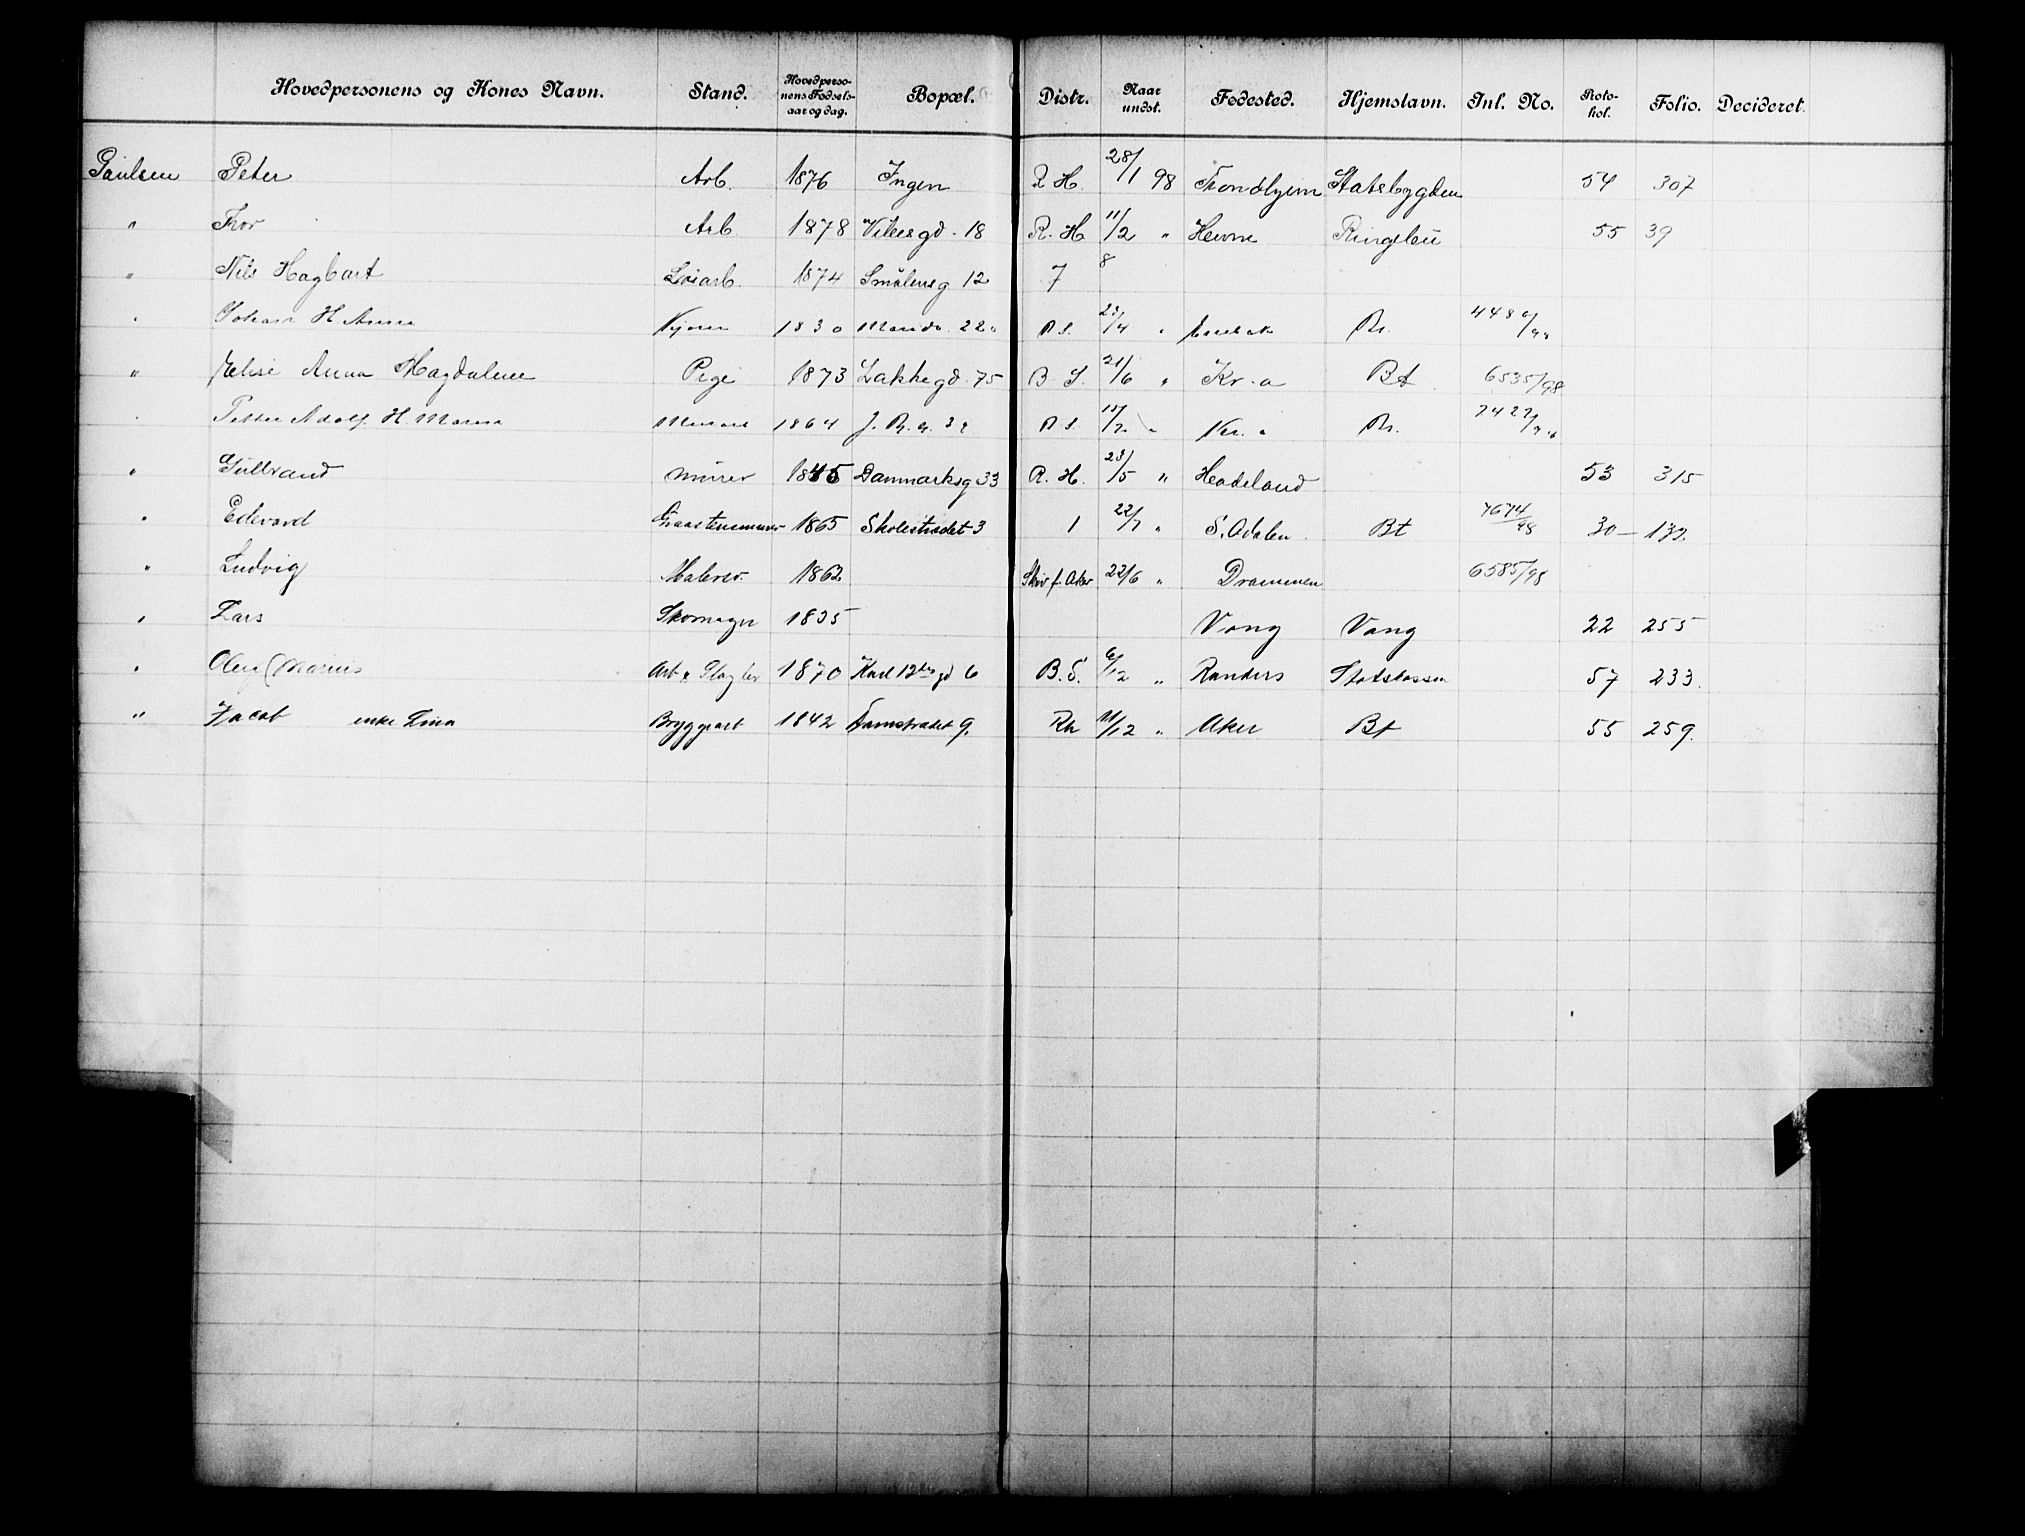 Hovedpersonens og Kones Navn. Stand. Hovedpersonens Fødselsaar og dag. Bopæl. Distr. Naar undst. Fødested. Hjemstavn. Inl. No. Protokol. Folio. Decideret.
Paulsen Peter Arb. 1876 Ingen R. H. 28/1 98 Trondhjem Statsbygden 54 307
" Thor Arb 1878 Vibesgd. 18 R. H. 11/2 " Hevne Ringebu 55 39
" Nils Hagbart Løsarb. 1874 Smålensg 12 7 8
" Johan H Anna 1830 22 B. S. /4 " Bt. 448
" Elise Anna Magdalene Pige 1873 Lakkegd. 75 B. S. 21/6 " Kr.a Bt 6535/98
" Petter Adolf H Maren 1864 B. S. " Kr.a Bt. 7427/98
" Gulbrand murer 1845 Danmarksg 33 R. H. 23/5 " Hadeland 53 315
" Edvard Graastensmurer 1865 Skolestrædet 3 1 22/7 " S. Odalen Bt 7674/98 30 — 132.
" Ludvig Malersv. 1862 Skiv f. Aker 22/6 " Drammen 6585/98
" Lars Skomager 1835 Vang Vang 22 255
" Oluf Marius Arb & Slagter 1870 Karl 12tes gd 6 B. S. 6/12 " Randers Statskassen 57 233.
" Jacob enke Lina Bryggearb 1842 Damstrædet 9. Rh 21/12 " Aker Bt 55 259.